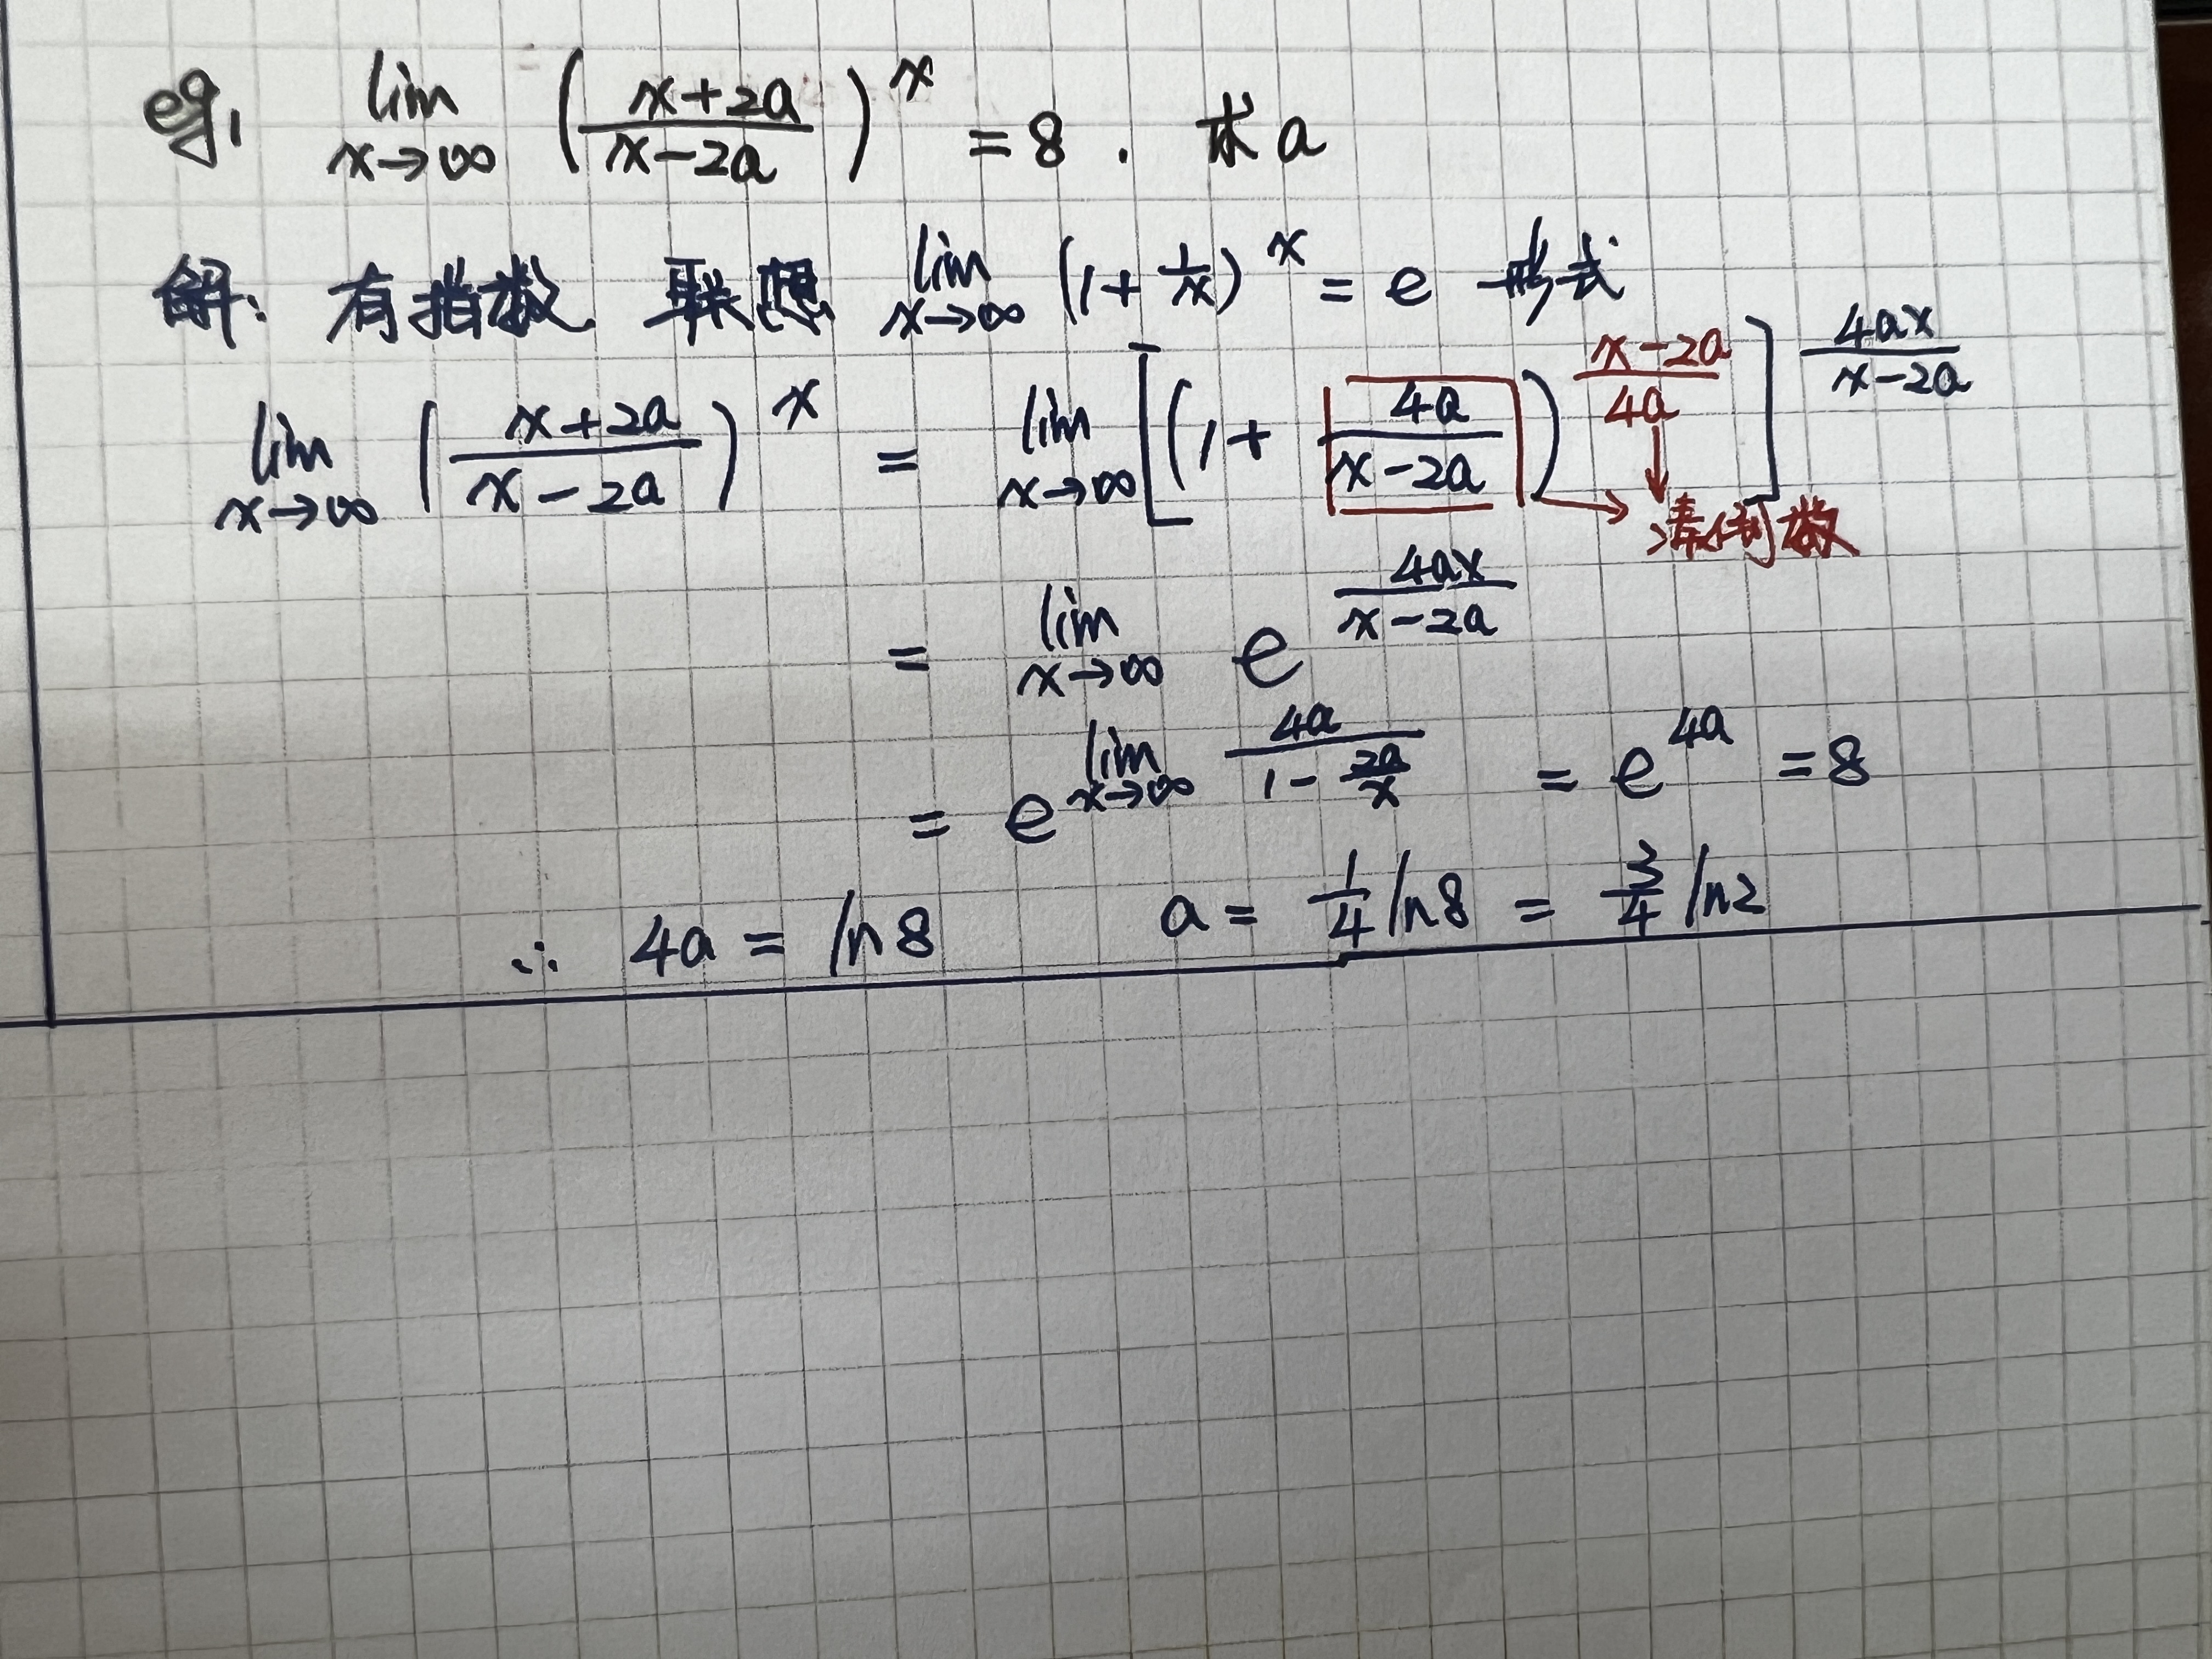 eg1 lim x→∞ ((x+2a)/(x-2a))^x = 8. 求a
解: 有指数 联想 lim x→∞ (1+1/x)^x = e 形式
lim x→∞ ((x+2a)/(x-2a))^x = lim x→∞ [(1+ 4a/(x-2a))^((x-2a)/4a)]^(4ax/(x-2a))
凑倒数
= lim x→∞ e^(4ax/(x-2a))
= e^(lim x→∞ 4a/(1-2a/x)) = e^(4a) = 8
∴ 4a = ln8 a = 1/4 ln8 = 3/4 ln2